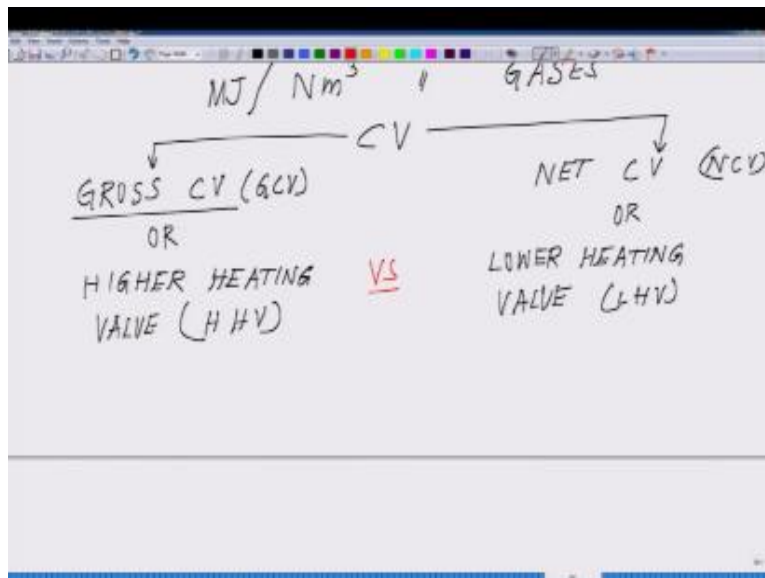 MJ/Nm³ " GASES
CV
GROSS CV (GCV)
OR
HIGHER HEATING
VALUE (HHV)
VS
NET CV (NCV)
OR
LOWER HEATING
VALUE (LHV)